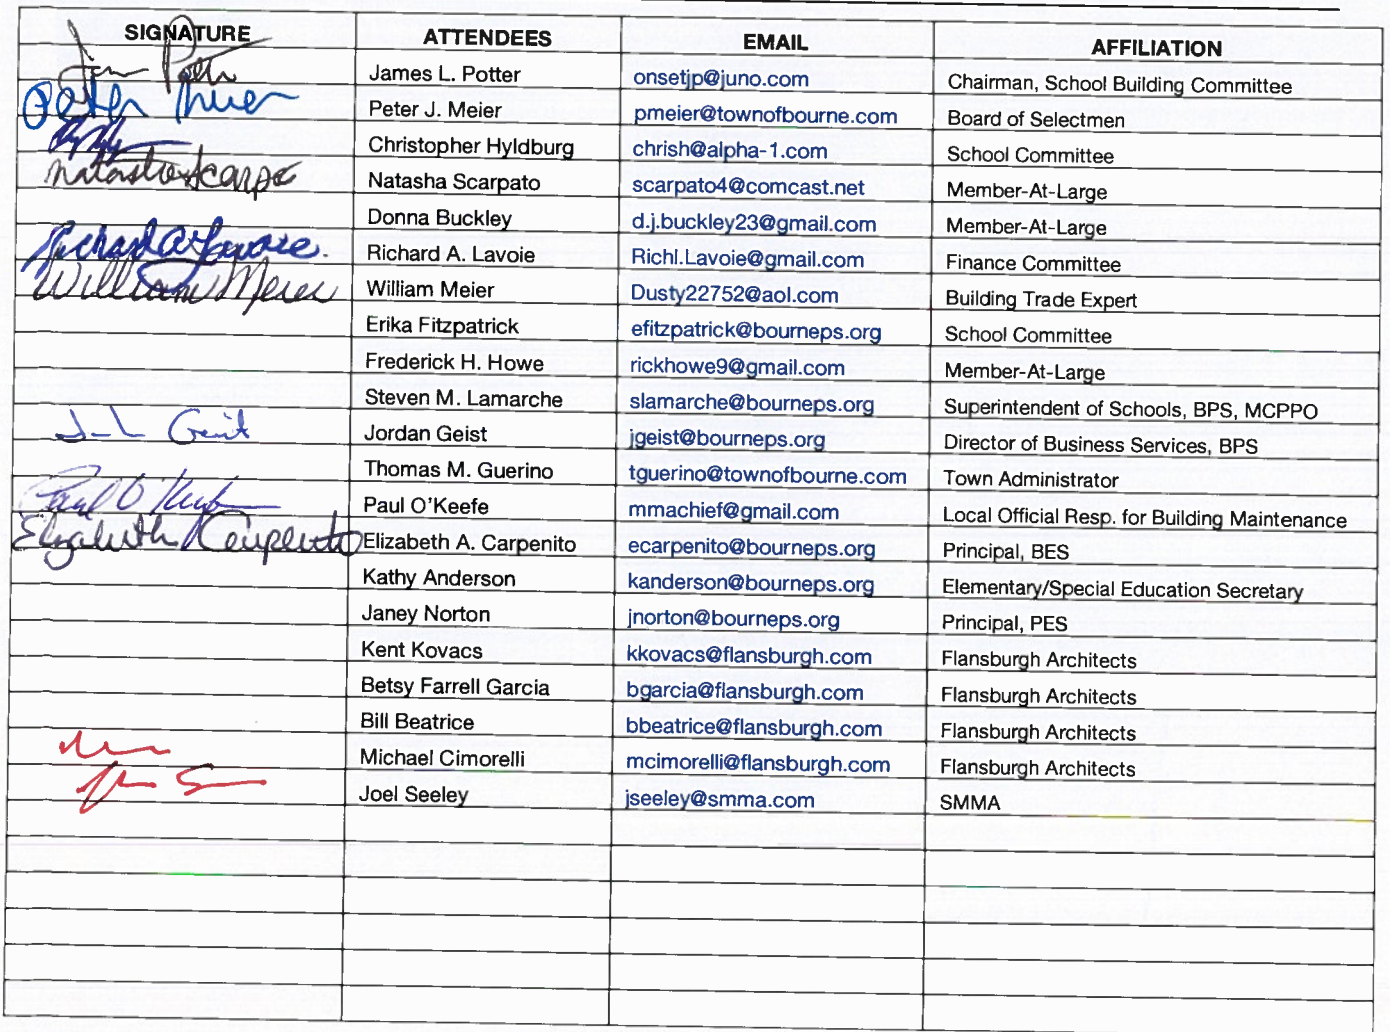 SIGNATURE ATTENDEES EMAIL AFFILIATION
Jim Potter James L. Potter onsetjp@juno.com Chairman, School Building Committee
Peter Meier Peter J. Meier pmeier@townofbourne.com Board of Selectmen
Christopher Hyldburg chrish@alpha-1.com School Committee
Natasha Scarpato scarpato4@comcast.net Member-At-Large
Donna Buckley d.j.buckley23@gmail.com Member-At-Large
Richard A. Lavoie Richard A. Lavoie Richl.Lavoie@gmail.com Finance Committee
William Meier William Meier Dusty22752@aol.com Building Trade Expert
Erika Fitzpatrick efitzpatrick@bourneps.org School Committee
Frederick H. Howe rickhowe9@gmail.com Member-At-Large
Steven M. Lamarche slamarche@bourneps.org Superintendent of Schools, BPS, MCPPO
Jordan Geist jgeist@bourneps.org Director of Business Services, BPS
Thomas M. Guerino tguerino@townofbourne.com Town Administrator
Paul O'Keefe Paul O'Keefe mmachief@gmail.com Local Official Resp. for Building Maintenance
Elizabeth Carpenito Elizabeth A. Carpenito ecarpenito@bourneps.org Principal, BES
Kathy Anderson kanderson@bourneps.org Elementary/Special Education Secretary
Janey Norton jnorton@bourneps.org Principal, PES
Kent Kovacs kkovacs@flansburgh.com Flansburgh Architects
Betsy Farrell Garcia bgarcia@flansburgh.com Flansburgh Architects
Bill Beatrice bbeatrice@flansburgh.com Flansburgh Architects
Michael Cimorelli mcimorelli@flansburgh.com Flansburgh Architects
Joel Seeley jseeley@smma.com SMMA